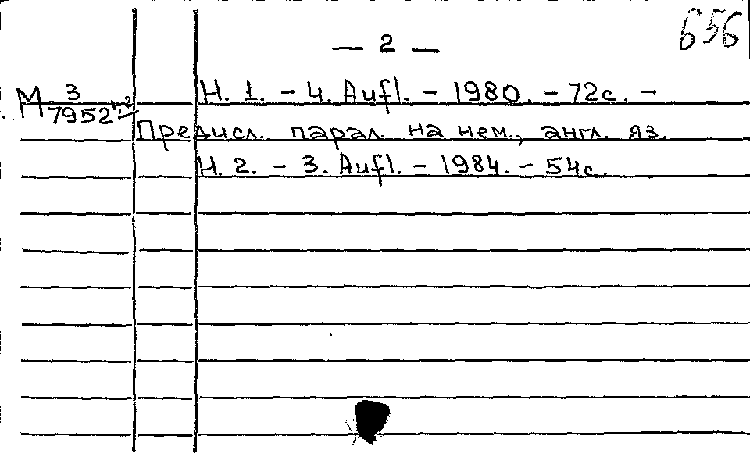 656
— 2 —
М 3/7952 н2
H. 1. – 4. Aufl. – 1980. – 72с. –
Предисл. парал. на нем., англ. яз.
H. 2. – 3. Aufl. – 1984. – 54с.